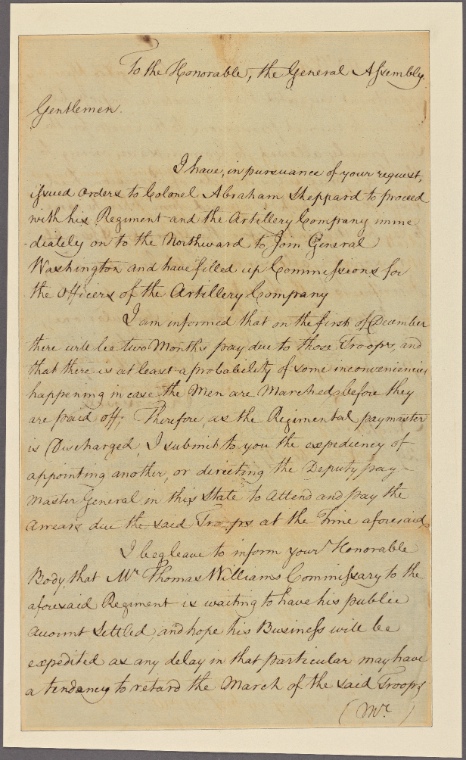 To the Honorable, the General Assembly.
Gentlemen.
I have, in pursuance of your request,
issued orders to Colonel Abraham Sheppard to proceed
with his Regiment and the Artillery Company imme
-diately on to the Northward to Join General
Washington and have filled up Commissions for
the Officers of the Artillery Company
I am informed that on the first of December
there will be two Months pay due to those Troops, and
that there is at least a probability of some inconveniencies
happening in case the Men are Marched before they
are paid off; Therefore, as the Regimental paymaster
is Discharged, I submit to you the expediency of
appointing another, or directing the Deputy pay-
Master General in this State to Attend and pay the
Arrears due the said Troops at the Time aforesaid
I beg leave to inform your Honorable
Body, that Mr. Thomas Williams Commissary to the
aforesaid Regiment is waiting to have his public
account Settled, and hope his Business will be
expedited as any delay in that particular may have
a tendancy to retard the March of the said Troops
(Mr. )